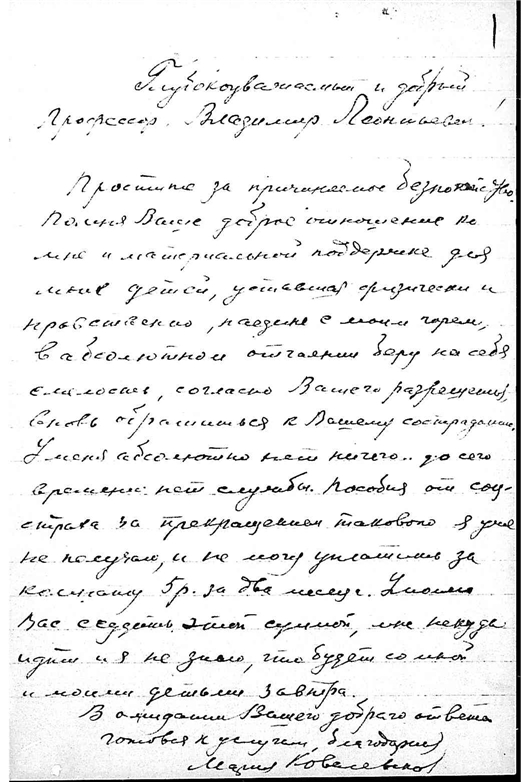 1
Глубокоуважаемый и добрый
Профессор Владимир Леонтьевич!
Простите за причиняемое безпокойство.
Помня Ваше доброе отношение ко
мне и материальной поддержке для
моих детей, уставшая физически и
нравственно, наедине с моим горем,
в абсолютном отчаянии беру на себя
смелость, согласно Вашего разрешения,
вновь обратиться к Вашему состраданию.
У меня абсолютно нет ничего.. до сего
времени нет службы. Пособия от соц-
страха за прекращением такового я уже
не получаю, и не могу уплатить за
комнату 5 р. за два месяца. Умоляю
Вас ссудить этой суммой, мне некуда
идти и я не знаю, что будет со мной
и моими детьми завтра.
В ожидании Вашего добраго ответа
готовая к услугам, благодарная
Мария Ковалевская